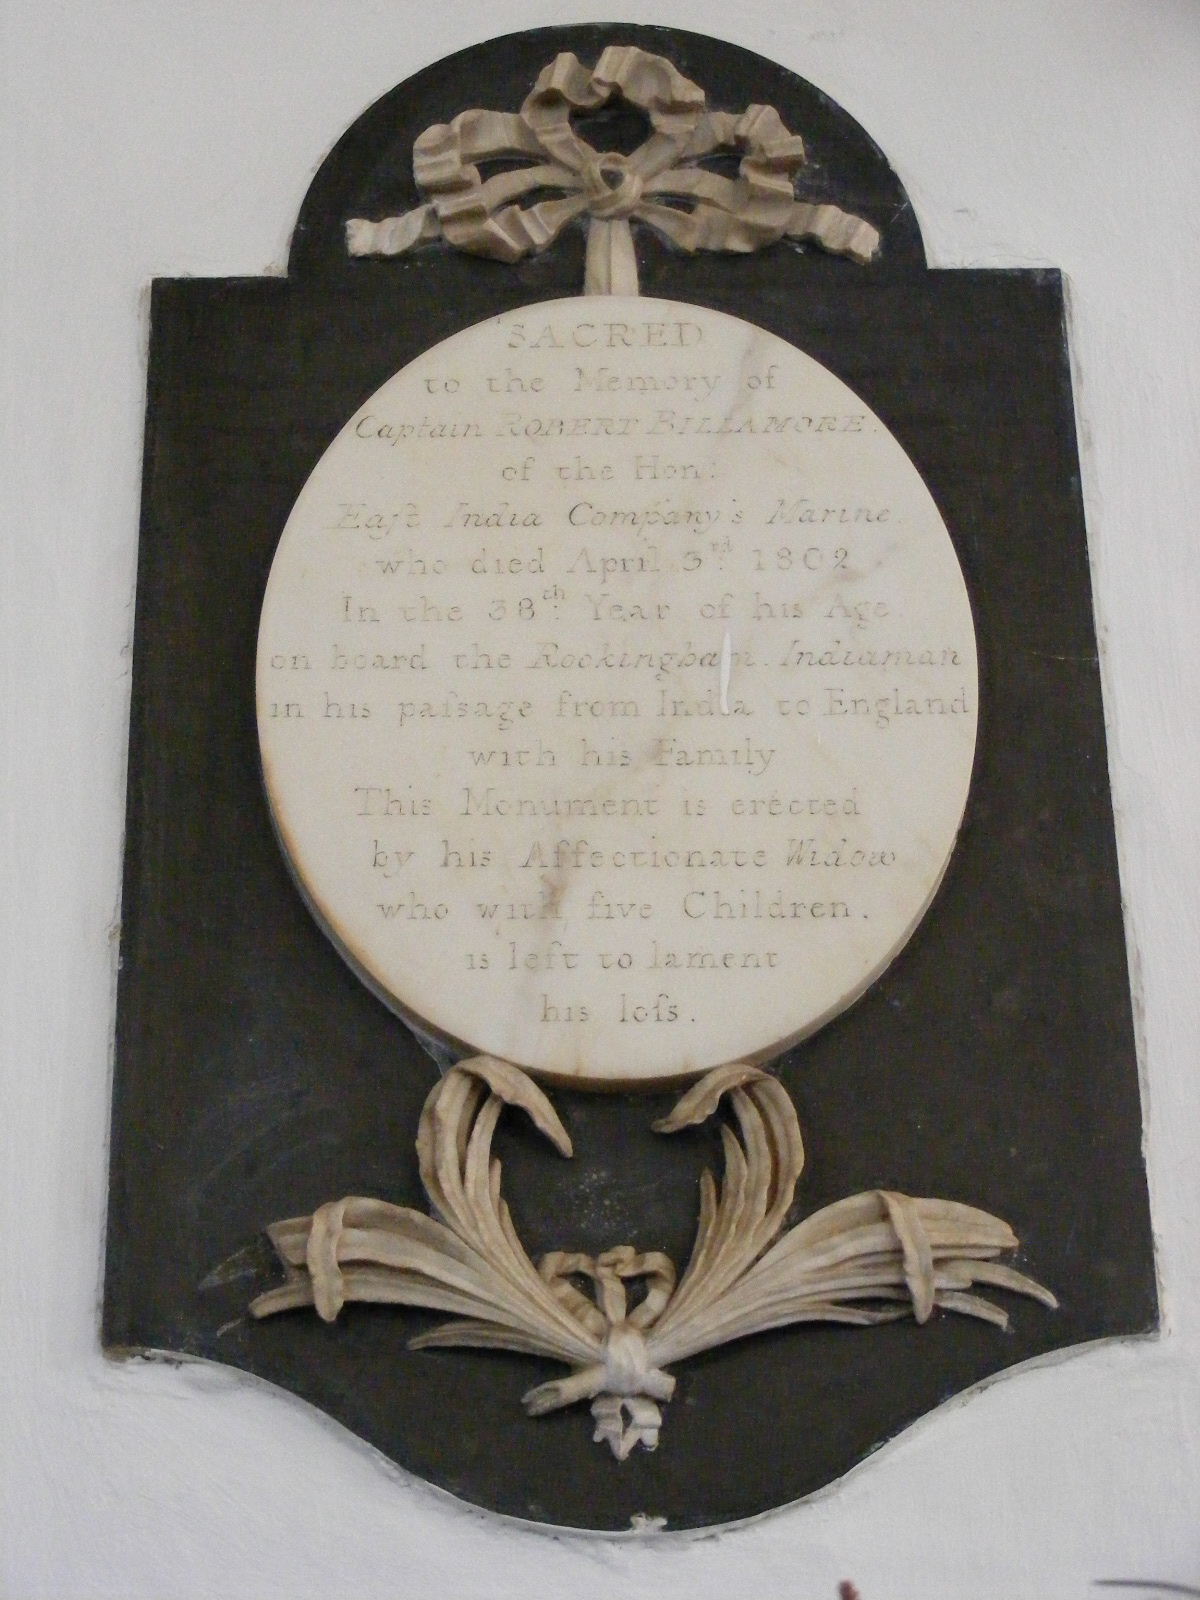 SACRED
to the Memory of
Captain ROBERT BILLAMORE.
of the Hon:
Eaſt India Company's Marine
who died April 3rd: 1802
In the 38th: Year of his Age
on board the Rockingham Indiaman
in his paſsage from India to England
with his Family
This Monument is erected
by his Affectionate Widow
who with five Children.
is left to lament
his loſs.